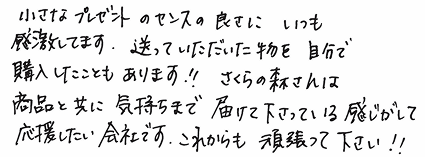 小さなプレゼントのセンスの良さに いつも
感激してます. 送っていただいた物を 自分で
購入したこともあります!! さくらの森さんは
商品と共に 気持ちまで 届けて下さっている 感じがして
応援したい 会社です. これからも 頑張って下さい!!